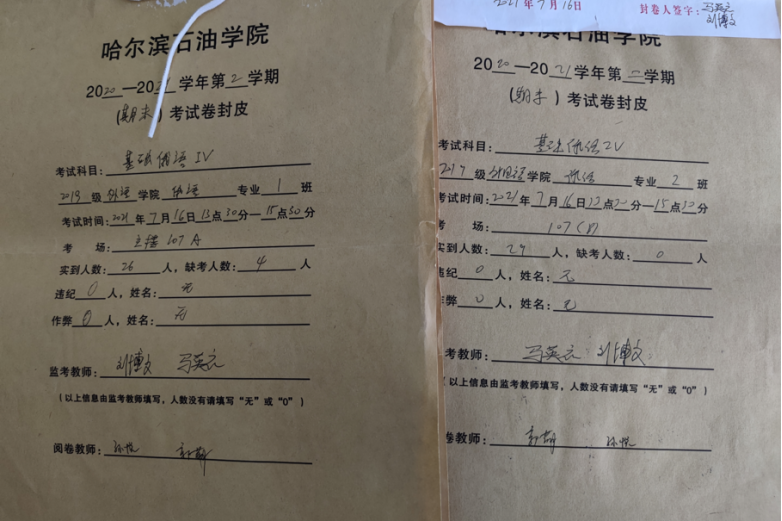 哈尔滨石油学院
2020—2021学年第2学期
(期末)考试卷封皮
考试科目:基础俄语IV
2019级外语学院俄语专业1班
考试时间:2021年7月16日13点30分—15点30分
考 场:主楼107A
实到人数:26人,缺考人数:4人
违纪0人,姓名:无
作弊0人,姓名:无
监考教师:刘博文 马英元
(以上信息由监考教师填写,人数没有请填写“无”或“0”)
阅卷教师:
2021年7月16日 封卷人签字:马英元
刘博文
哈尔滨石油学院
2020—2021学年第二学期
(期末)考试卷封皮
考试科目:基础俄语IV
级外国语学院俄语专业2班
考试时间:2021年7月16日13点30分—15点30分
考 场:107
实到人数:29人,缺考人数:0人
违纪0人,姓名:无
作弊0人,姓名:无
考教师:马英元 刘博文
(以上信息由监考教师填写,人数没有请填写“无”或“0”)
卷教师: